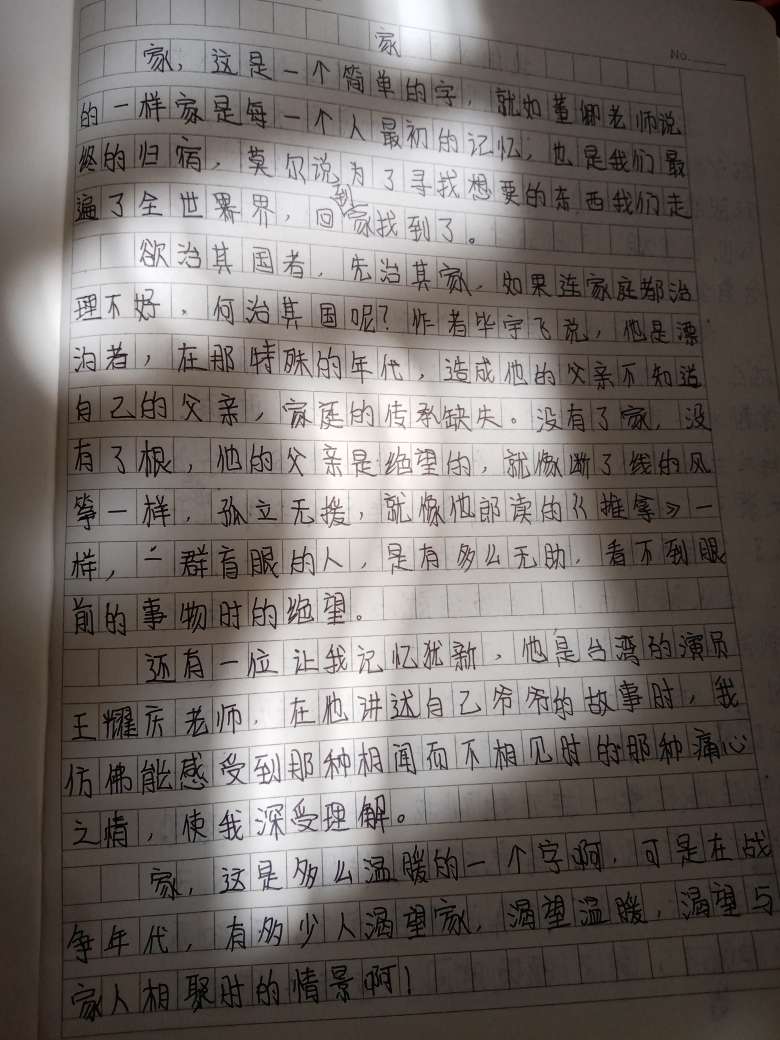 家
No.
家，这是一个简单的字，就如董卿老师说
的一样家是每一个人最初的记忆，也是我们最
终的归宿，莫尔说为了寻找想要的东西我们走
遍了全世界，回到家找到了。
欲治其国者，先治其家，如果连家庭都治
理不好，何治其国呢？作者毕宇飞说，他是漂
泊者，在那特殊的年代，造成他的父亲不知道
自己的父亲，家庭的传承缺失。没有了家，没
有了根，他的父亲是绝望的，就像断了线的风
筝一样，孤立无援，就像他郎读的《推拿》一
样，一群盲眼的人，是有多么无助，看不到眼
前的事物时的绝望。
还有一位让我记忆犹新，他是台湾的演员
王耀庆老师，在他讲述自己爷爷的故事时，我
仿佛能感受到那种相闻而不相见时的那种痛心
之情，使我深受理解。
家，这是多么温暖的一个字啊，可是在战
争年代，有多少人渴望家，渴望温暖，渴望与
家人相聚时的情景啊！